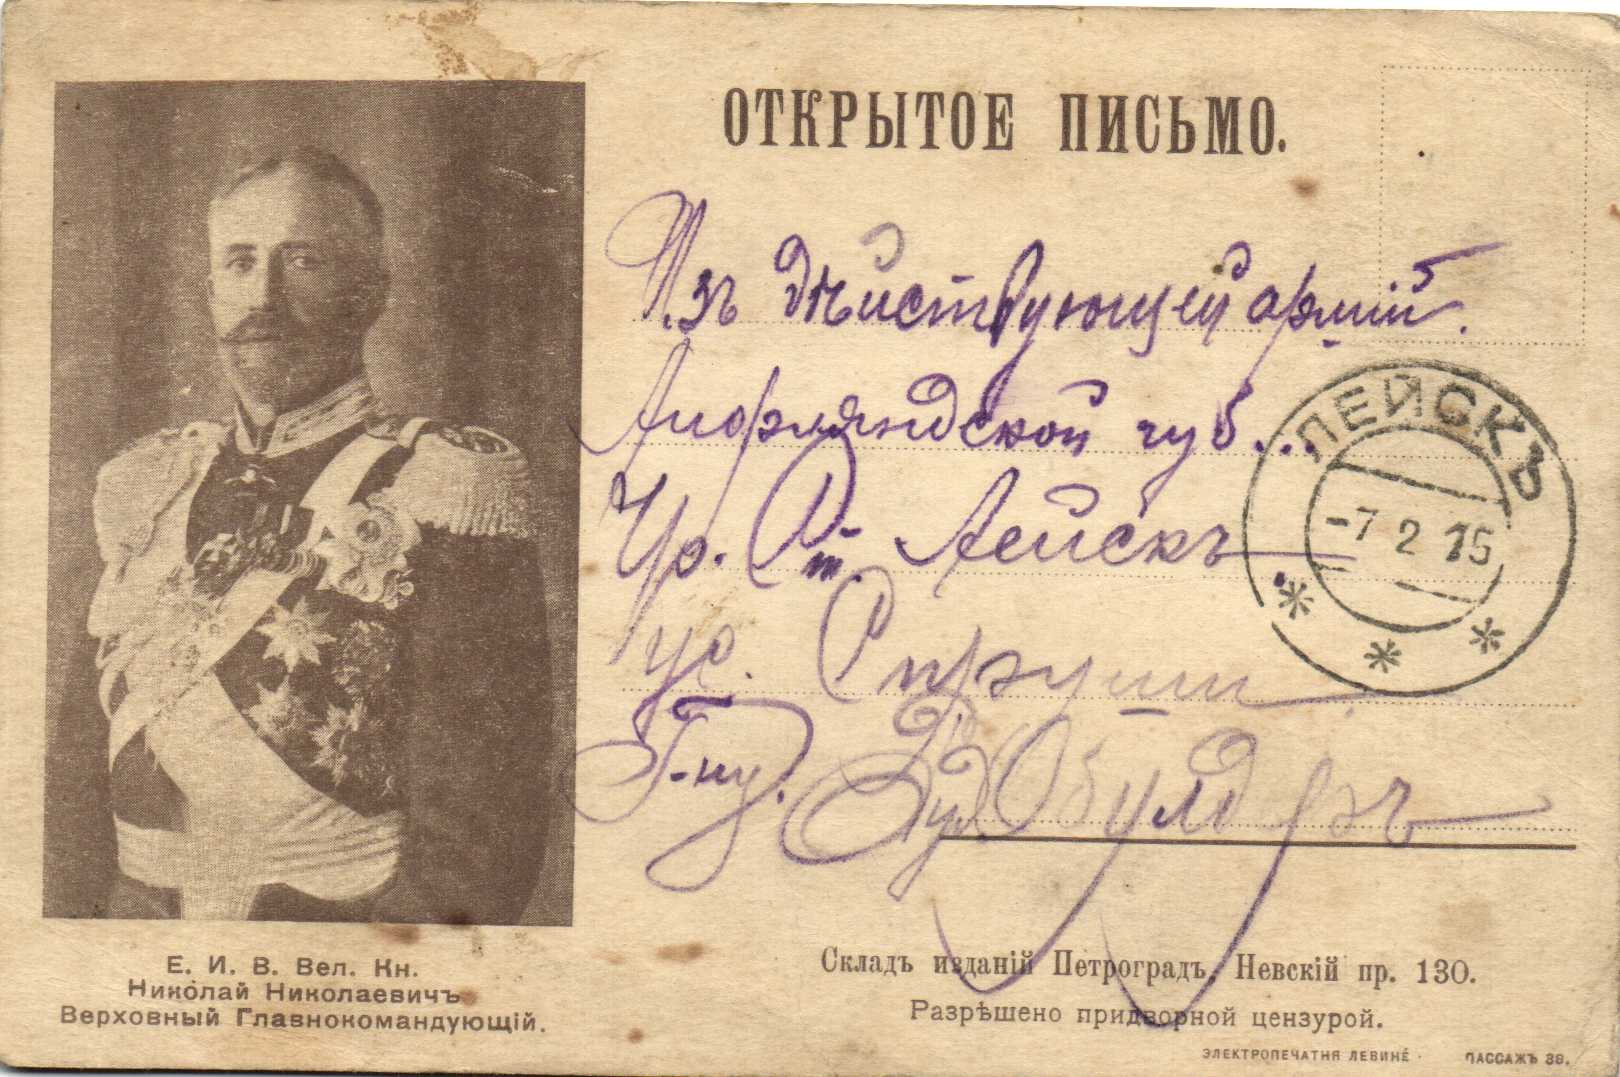 ОТКРЫТОЕ ПИСЬМО.
Изъ дѣйствующей арміи.
Лифляндской губ...
Ст. Лейскъ
ус.
Г-ну.
ЛЕЙСКЪ
-7 2 15
Е. И. В. Вел. Кн.
Николай Николаевичъ
Верховный Главнокомандующій.
Складъ изданій Петроградъ, Невскій пр. 130.
Разрѣшено придворной цензурой.
ЭЛЕКТРОПЕЧАТНЯ ЛЕВИНЕ · ПАССАЖЪ 38.